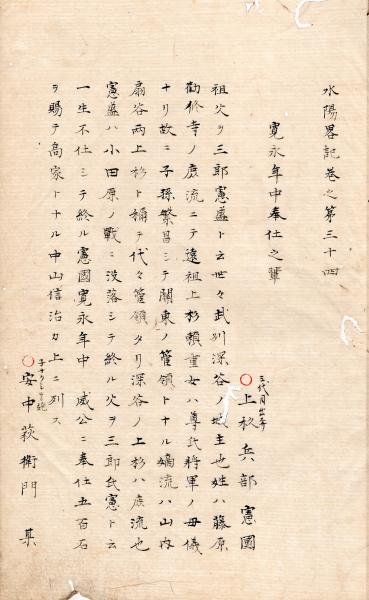 水陽畧記巻之第三十四
寛永年中奉仕之輩
三代目出奔
〇上杉兵部憲國
祖父ヲ三郎憲盛ト云世々武列深谷ノ城主也姓ハ藤原
勧修寺ノ庶流ニテ遠祖上杉頼重女ハ尊氏將軍ノ母儀
ナリ故ニ子孫繁昌シテ關東ノ管領トナル嫡流ハ山内
扇谷両上杉ト稱ヲ代々管領タリ深谷ノ上杉ハ庶流也
憲盛ハ小田原ノ戰ニ没落シテ終ル父ヲ三郎氏憲ト云
一生不仕シテ終ル憲國寛永年中 威公ニ奉仕五百石
ヲ賜テ高家トナル中山信治カ上ニ列ス
子ナクシテ絶
〇安中萩衛門 某